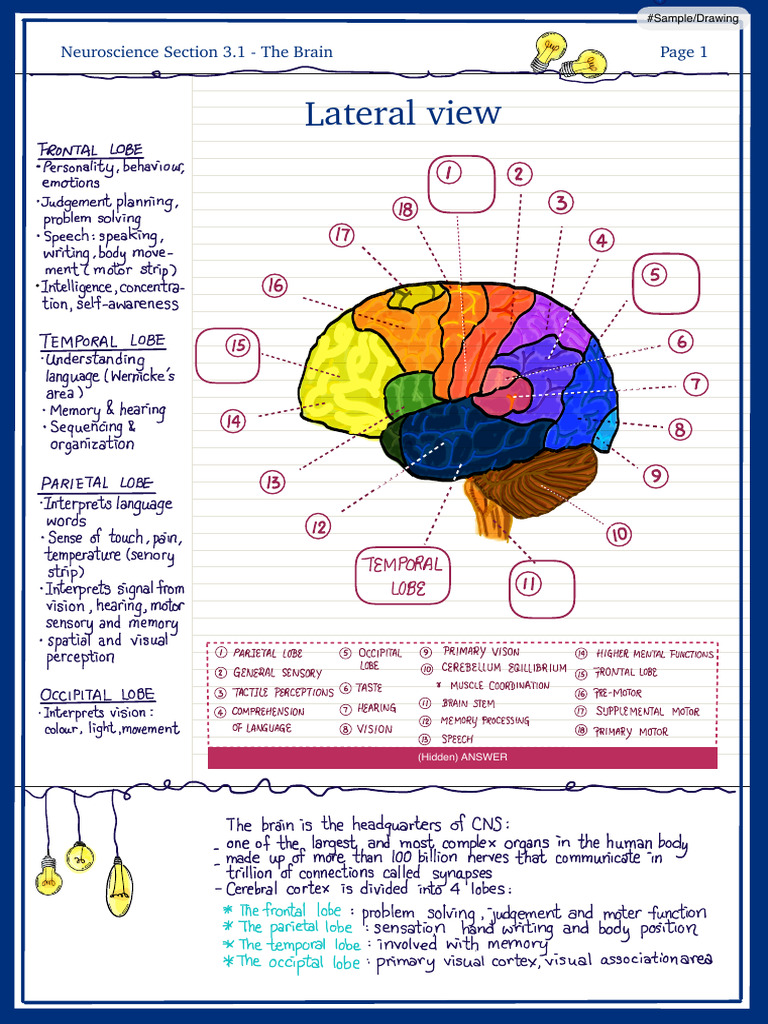 #Sample/Drawing
Neuroscience Section 3.1 - The Brain
Page 1
Lateral view
FRONTAL LOBE
·Personality, behaviour,
emotions
·Judgement planning,
problem solving
·Speech: speaking,
writing, body move-
ment ( motor strip)
·Intelligence, concentra-
tion, self-awareness
TEMPORAL LOBE
·Understanding
language (Wernicke's
area)
· Memory & hearing
· Sequencing &
organization
PARIETAL LOBE
·Interprets language
words
· Sense of touch, pain,
temperature (senory
strip)
·Interprets signal from
vision, hearing, motor
sensory and memory
· spatial and visual
perception
OCCIPITAL LOBE
· Interprets vision:
colour, light, movement
1
2
3
4
5
6
7
8
9
10
11
TEMPORAL
LOBE
12
13
14
15
16
17
18
1 PARIETAL LOBE
2 GENERAL SENSORY
3 TACTILE PERCEPTIONS
4 COMPREHENSION
OF LANGUAGE
5 OCCIPITAL
LOBE
6 TASTE
7 HEARING
8 VISION
9 PRIMARY VISON
10 CEREBELLUM EQILIBRIUM
* MUSCLE COORDINATION
11 BRAIN STEM
12 MEMORY PROCESSING
13 SPEECH
14 HIGHER MENTAL FUNCTIONS
15 FRONTAL LOBE
16 PRE-MOTOR
17 SUPPLEMENTAL MOTOR
18 PRIMARY MOTOR
(Hidden) ANSWER
The brain is the headquarters of CNS:
- one of the largest and most complex organs in the human body
- made up of more than 100 billion nerves that communicate in
- trillion of connections called synapses
- Cerebral cortex is divided into 4 lobes:
* The frontal lobe : problem solving, judgement and moter function
* The parietal lobe : sensation hand writing and body position
* The temporal lobe : involved with memory
* The occiptal lobe : primary visual cortex, visual association area